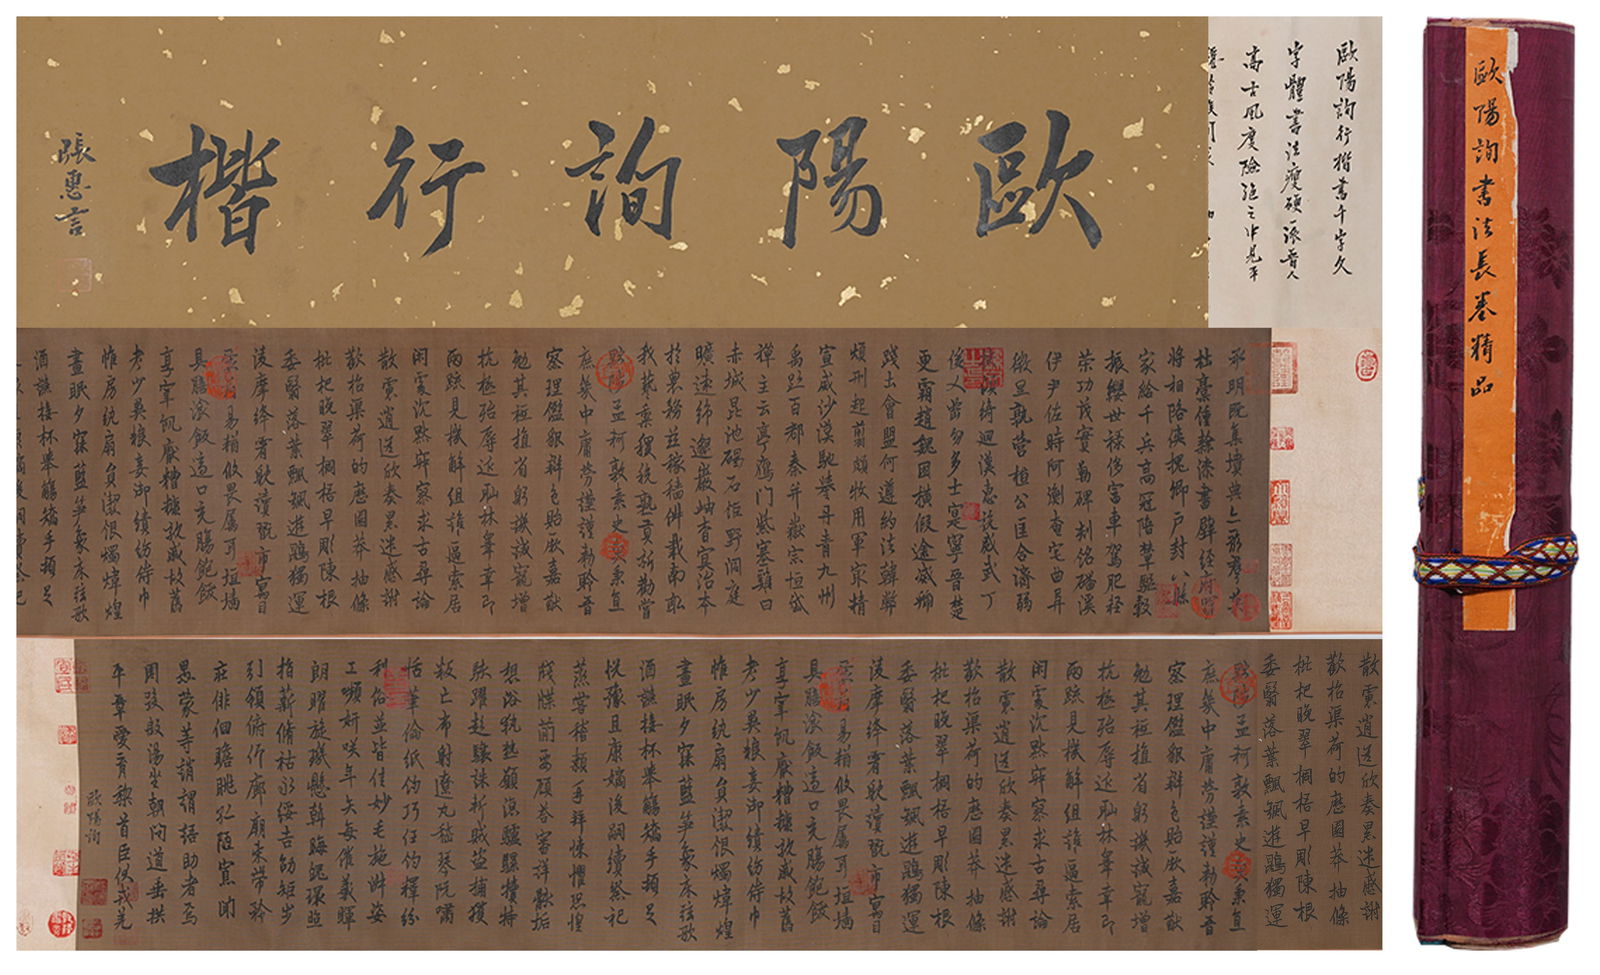 歐陽詢行楷
張惠言
歐陽詢行楷書千字文
字體書法瘦硬一派晉人
高古風度險絕之非見平
歐陽詢書法長卷精品
承明既集墳典亦聚群英
杜稾鍾隸漆書壁經府羅
將相路俠槐卿戶封八縣
家給千兵高冠陪輦驅轂
振纓世祿侈富車駕肥輕
策功茂實勒碑刻銘磻溪
伊尹佐時阿衡奄宅曲阜
微旦孰營桓公匡合濟弱
扶傾綺迴漢惠說感武丁
俊乂密勿多士寔寧晉楚
更霸趙魏困橫假途滅虢
踐土會盟何遵約法韓弊
煩刑起翦頗牧用軍最精
宣威沙漠馳譽丹青九州
禹跡百郡秦并嶽宗恒岱
禪主云亭鴈門紫塞雞田
赤城昆池碣石鉅野洞庭
曠遠綿邈巖岫杳冥治本
於農務茲稼穡俶載南畝
我藝黍稷稅熟貢新勸賞
黜陟孟軻敦素史魚秉直
庶幾中庸勞謙謹勑聆音
察理鑑貌辯色貽厥嘉猷
勉其祗植省躬譏誡寵增
抗極殆辱近恥林皋幸即
兩疏見機解組誰逼索居
閑處沉默寂寥求古尋論
散慮逍遙欣奏累遣慼謝
歡招渠荷的歷園莽抽條
枇杷晚翠桐梧早彫陳根
委翳落葉飄颻遊鵾獨運
凌摩絳霄耽讀翫市寓目
囊箱易輶攸畏屬耳垣墻
具膳湌飯適口充腸飽飫
享宰飢厭糟糠親戚故舊
老少異糧妾御績紡侍巾
帷房紈扇員潔銀燭煒煌
晝眠夕寐藍笋象床弦歌
酒讌接杯舉觴矯手頓足
散慮逍遙欣奏累遣慼謝
歡招渠荷的歷園莽抽條
枇杷晚翠桐梧早彫陳根
委翳落葉飄颻遊鵾獨運
黜陟孟軻敦素史魚秉直
庶幾中庸勞謙謹勑聆音
察理鑑貌辯色貽厥嘉猷
勉其祗植省躬譏誡寵增
抗極殆辱近恥林皋幸即
兩疏見機解組誰逼索居
閑處沉默寂寥求古尋論
散慮逍遙欣奏累遣慼謝
歡招渠荷的歷園莽抽條
枇杷晚翠桐梧早彫陳根
委翳落葉飄颻遊鵾獨運
凌摩絳霄耽讀翫市寓目
囊箱易輶攸畏屬耳垣墻
具膳湌飯適口充腸飽飫
享宰飢厭糟糠親戚故舊
老少異糧妾御績紡侍巾
帷房紈扇員潔銀燭煒煌
晝眠夕寐藍笋象床弦歌
酒讌接杯舉觴矯手頓足
悅豫且康嫡後嗣續祭祀
蒸嘗稽顙再拜悚懼恐惶
牋牒簡要顧答審詳骸垢
想浴執熱願涼驢騾犢特
駭躍超驤誅斬賊盜捕獲
叛亡布射遼丸嵇琴阮嘯
恬筆倫紙鈞巧任釣釋紛
利俗並皆佳妙毛施淑姿
工嚬妍咲年矢每催羲暉
朗曜旋璣懸斡晦魄環照
指薪脩祜永綏吉劭矩步
引領俯仰廊廟束帶矜
莊俳佪瞻眺孤陋寡聞
愚蒙等誚謂語助者焉
周發殷湯坐朝問道垂拱
平章愛育黎首臣伏戎羌
歐陽詢